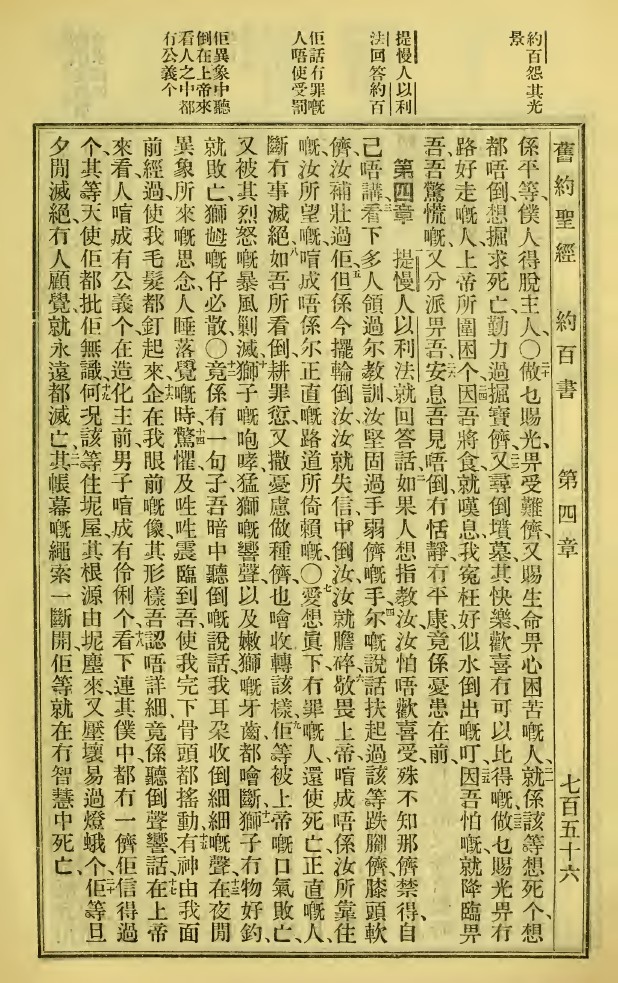 約百怨其光
景
提慢人以利
法回答約百
佢話冇罪嘅
人唔使受罰
佢異象中聽
倒在上帝來
看人之中都
冇公義个
舊約聖經 約百書 第四章 七百五十六
係平等、僕人得脫主人、〇二十做乜賜光、畀受難儕、又賜生命畀心困苦嘅人、二一就係該等想死个、想
都唔倒、想掘求死亡、勤力過掘寶儕、二二又尋倒墳墓、其快樂歡喜冇可以比得嘅、二三做乜賜光畀冇
路好走嘅人、上帝所圍困个、二四因吾將食就嘆息、我寃枉好似水倒出嘅叮、二五因吾怕嘅、就降臨畀
吾、吾驚慌嘅、又分派畀吾、二六安息吾見唔倒、冇恬靜、冇平康、竟係憂患在前、
第四章 提慢人以利法就回答話、二如果人想指教汝、汝怕唔歡喜受、殊不知那儕禁得自
己唔講、三看下多人領過尔教訓、汝堅固過手弱儕嘅手、四尔嘅說話扶起過該等跌腳儕、膝頭軟
儕、汝補壯過佢、五但係今擺輪倒汝、汝就失信、中倒汝、汝就膽碎、六敬畏上帝、啀成唔係汝所靠住
嘅、汝所望嘅、啀成唔係尔正直嘅路道所倚賴嘅、〇七愛想眞下、冇罪嘅人、還使死亡、正直嘅人、
斷冇事滅絕、八如吾所看倒、耕罪愆、又撒憂慮做種儕、也噲收轉該樣、九佢等被上帝嘅口氣敗亡、
又被其烈怒嘅暴風剿滅、十獅子嘅咆哮、猛獅嘅響聲、以及嫩獅嘅牙齒都噲斷、十一獅子冇物好釣、
就敗亡、獅乸嘅仔必散、〇十二竟係有一句子、吾暗中聽倒嘅說話、我耳朶收倒細細嘅聲、十三在夜間
異象所來嘅思念、人睡落覺嘅時、十四驚懼及𠲜𠲜震臨到吾、使我完下骨頭都搖動、十五有神由我面
前經過、使我毛髮都釘起來、十六企在我眼前嘅像、其形樣吾認唔詳細、竟係聽倒聲響話、十七在上帝
來看、人啀成有公義个、在造化主前、男子啀成有伶俐个、十八看下連其僕中都冇一儕佢信得過
个、其等天使佢都批佢無識、十九何况該等住坭屋、其根源由坭塵來、又壓壞易過燈蛾个、二十佢等旦
夕閒滅絕、冇人顧覺、就永遠都滅亡、二一其帳幕嘅繩索一斷開、佢等就在冇智慧中死亡、